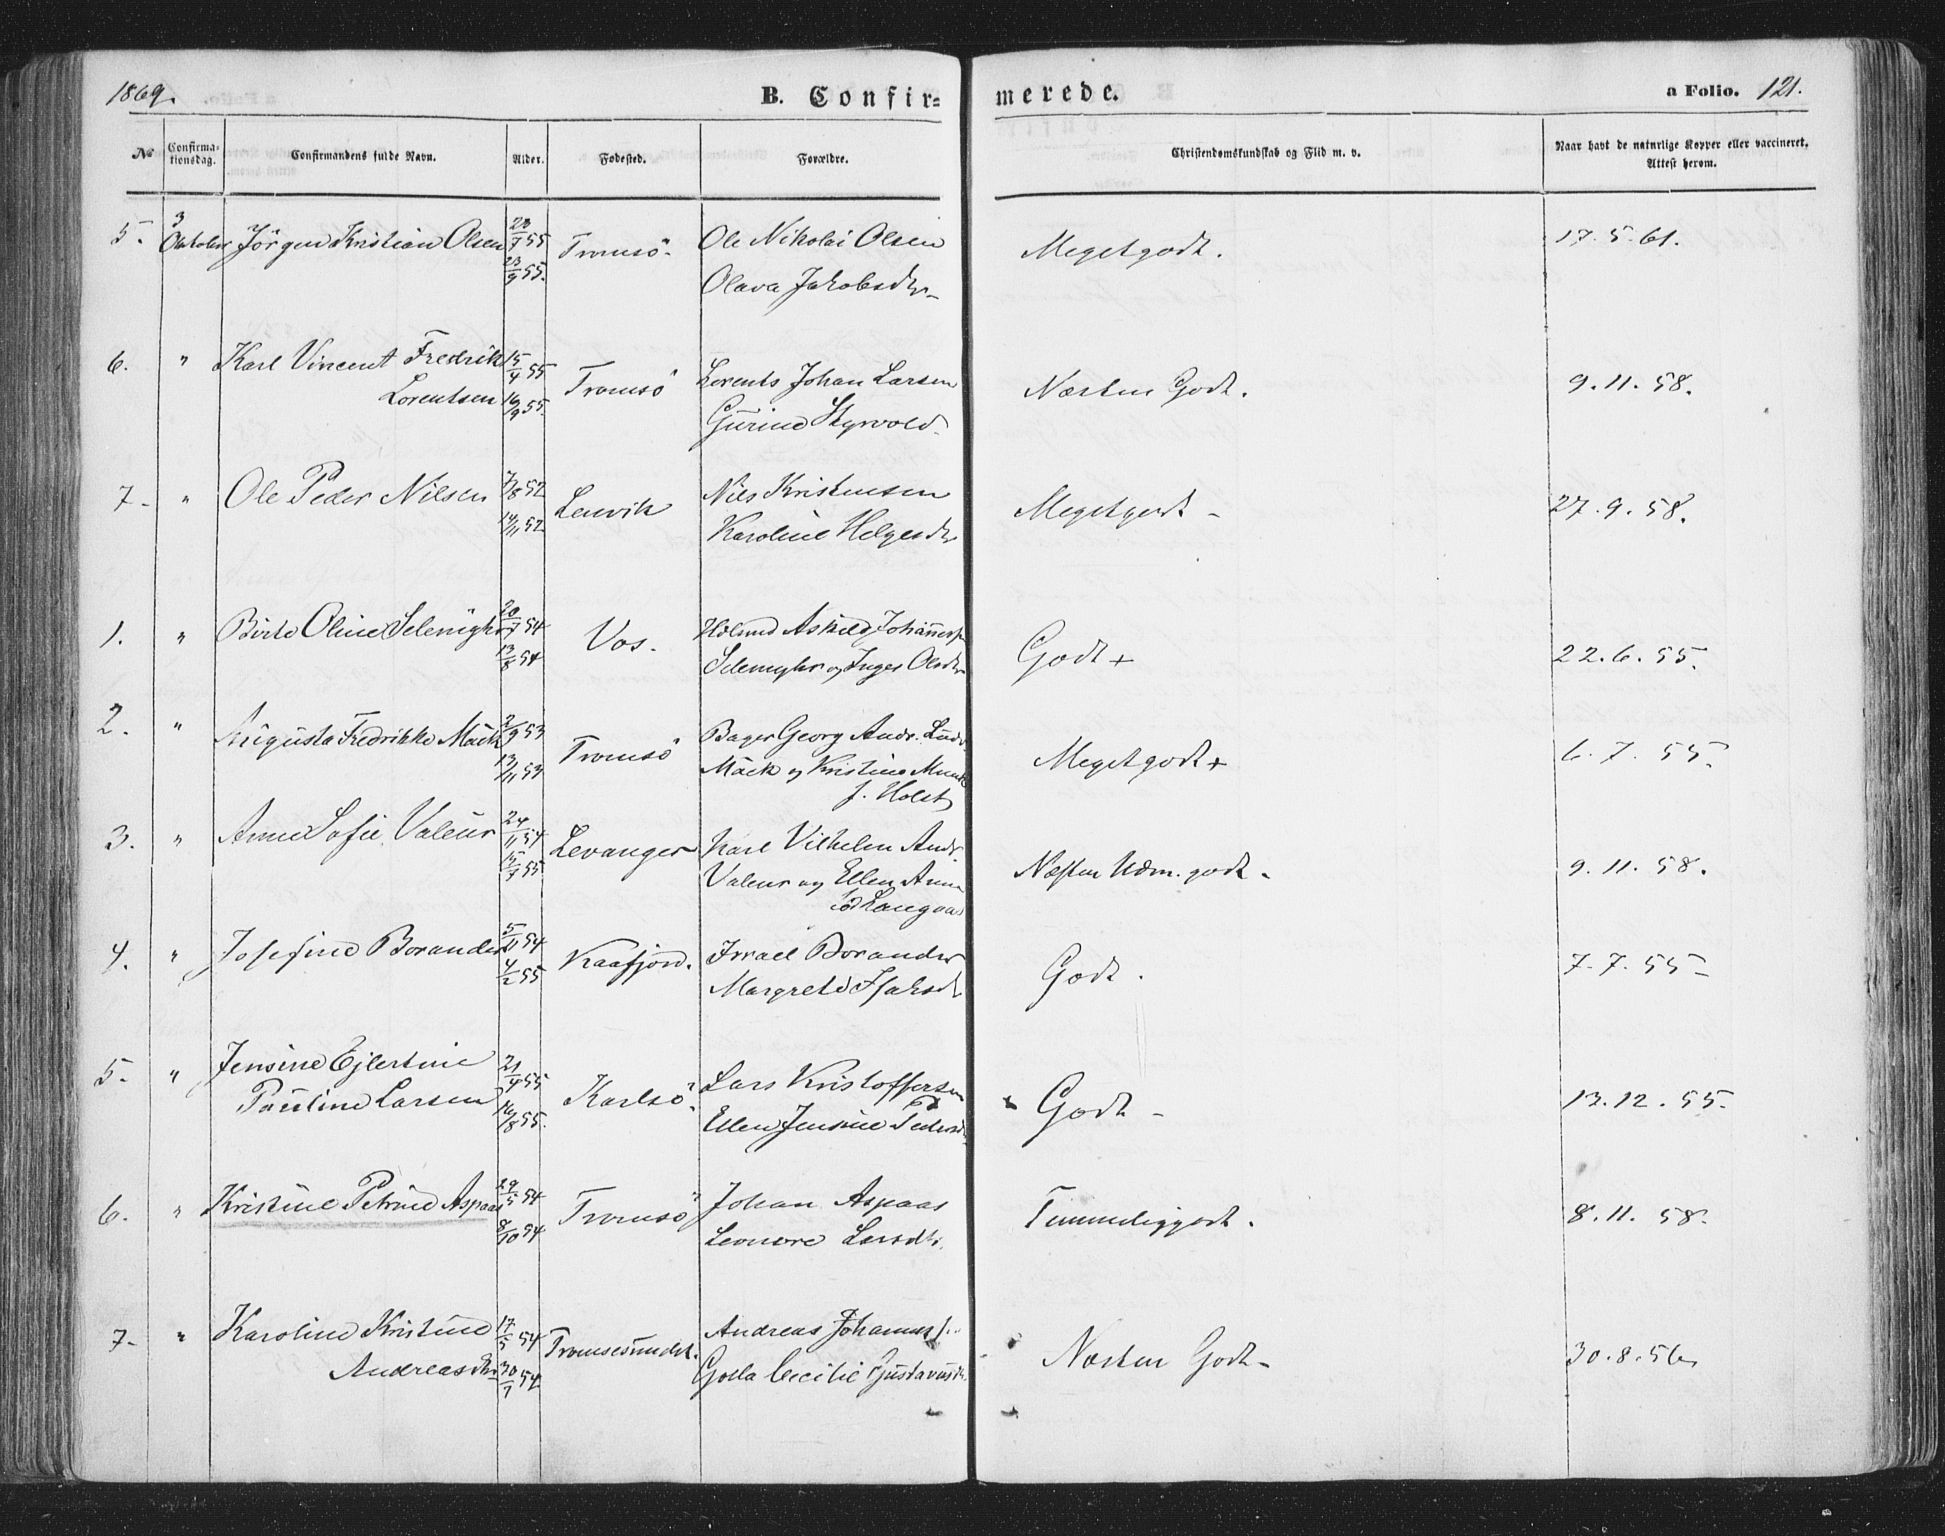 1869.
B. Confir-
merede.
a Folio. 121.
No
Confirma-
tionsdag.
Confirmandens fulde Navn.
Alder.
Fødested.
Forældre.
Christendomskundskab og Flid m. v.
Naar havt de naturlige Kopper eller vaccineret.
Attest herom.
5. 3 October Jörgen Kristian Olsen 23/7 55 Tromsö. Ole Nikolai Olsen Meget godt. 17.5.61.
23/9 55. Olava Jakobsdtr
6. " Karl Vincent Fredrik 15/4 55 Tromsö Lorents Johan Larsen Næsten Godt. 9.11.58.
Lorentsen 16/9 55. Gurine Styrvold
7- " Ole Peder Nilsen 7/8 52 Lenvik Nils Kristensen Meget godt - 27.9.58.
14/11 52 Karoline Helgesdtr
1. " Birte Oline Selemyhr 20/7 54 Vos. Askild Johannessen Godt + 22.6.55.
13/8 54 Selemyhr og Inger Olsdtr
2. " Augusta Fredrikke Mack 2/9 53 Tromsö Bager Georg Andr. Ludv. Meget godt + 6.7.55.
13/11 53 Mack og Kristine Munk
f. Holst
3. " Anne Sofie Valeur 24/11 54 Levanger Karl Vilhelm Andr. Næsten Udm. godt - 9.11.58.
15/7 55 Valeur og Ellen Anna
Langaas
4. " Josefine Borander 5/11 54 Kaafjord. Israel Borander Godt. 7.7.55-
4/2 55 Margrete Isaksd
5. " Jensine Ejlertine 21/4 55 Karlsö. Lars Kristoffersen Godt - 13.12.55.
Pauline Larsen 16/8 55. Ellen Jensine Pedersd
6. " Kristine Petrine Aspaas 29/5 54 Tromsö Johan Aspaas Temmelig godt. 8.11.58.
8/10 54 Leonore Larsdtr.
7- " Karoline Kristine 17/5 54 Tromsesundet. Andreas Johannes Næsten Godt - 30.8.56
Andreasdtr 30/7 54 Golla Cecilie Gustavusd.